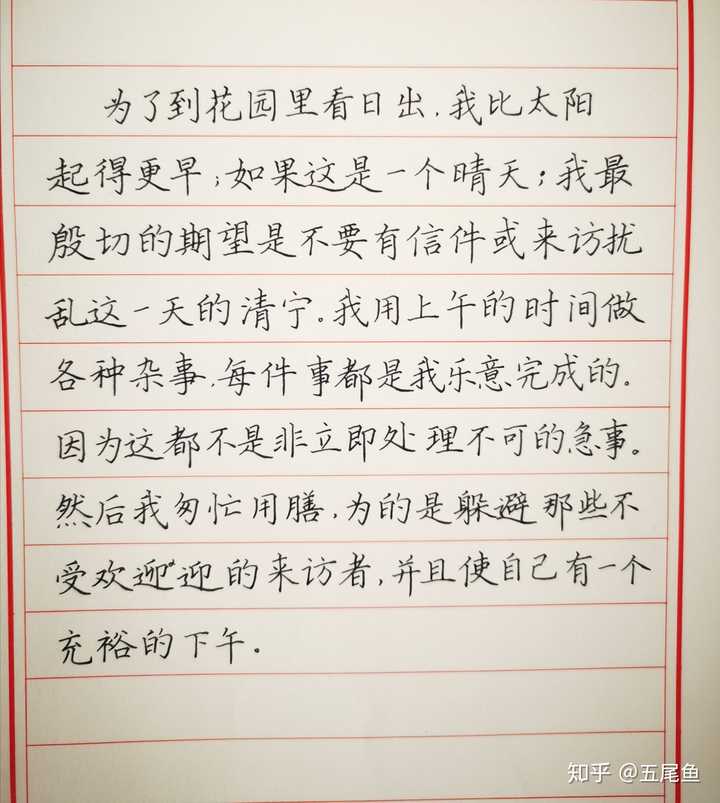 为了到花园里看日出，我比太阳
起得更早；如果这是一个晴天；我最
殷切的期望是不要有信件或来访扰
乱这一天的清宁。我用上午的时间做
各种杂事，每件事都是我乐意完成的。
因为这都不是非立即处理不可的急事。
然后我匆忙用膳，为的是躲避那些不
受欢迎迎的来访者，并且使自己有一个
充裕的下午。
知乎 @五尾鱼